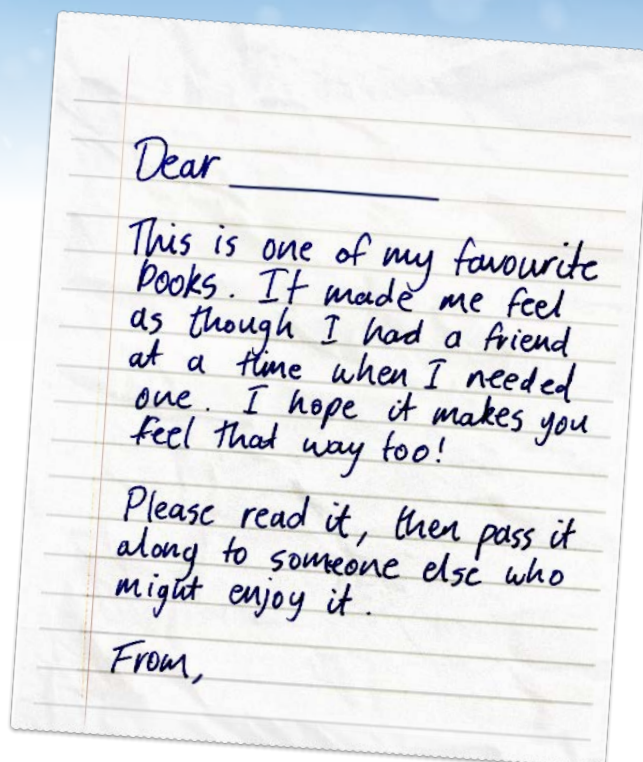 Dear __________
This is one of my favourite
books. It made me feel
as though I had a friend
at a time when I needed
one. I hope it makes you
feel that way too!
Please read it, then pass it
along to someone else who
might enjoy it.
From,